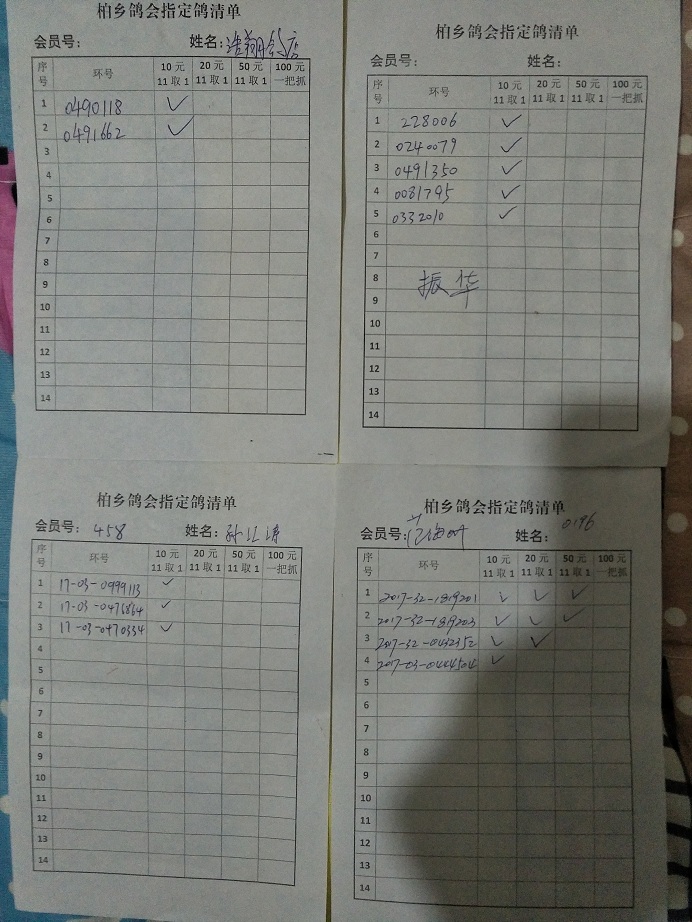 柏乡鸽会指定鸽清单
会员号： 姓名：浩翔鸽店
序号 环号 10元 11取1 20元 11取1 50元 11取1 100元 一把抓
1 0490118 ✓
2 0491662 ✓
3
4
5
6
7
8
9
10
11
12
13
14
柏乡鸽会指定鸽清单
会员号： 姓名：
序号 环号 10元 11取1 20元 11取1 50元 11取1 100元 一把抓
1 228006 ✓
2 0240079 ✓
3 0491350 ✓
4 0081795 ✓
5 0332010 ✓
6
7
8
振华
9
10
11
12
13
14
柏乡鸽会指定鸽清单
会员号：458 姓名：孙江涛
序号 环号 10元 11取1 20元 11取1 50元 11取1 100元 一把抓
1 17-03-0999113 ✓
2 17-03-0476864 ✓
3 17-03-0470334 ✓
4
5
6
7
8
9
10
11
12
13
14
柏乡鸽会指定鸽清单
会员号： 姓名：0196
序号 环号 10元 11取1 20元 11取1 50元 11取1 100元 一把抓
1 2017-32-1819201 ✓ ✓ ✓
2 2017-32-1819203 ✓ ✓ ✓
3 2017-32-0432352 ✓ ✓
4 2017-03-0444504 ✓
5
6
7
8
9
10
11
12
13
14